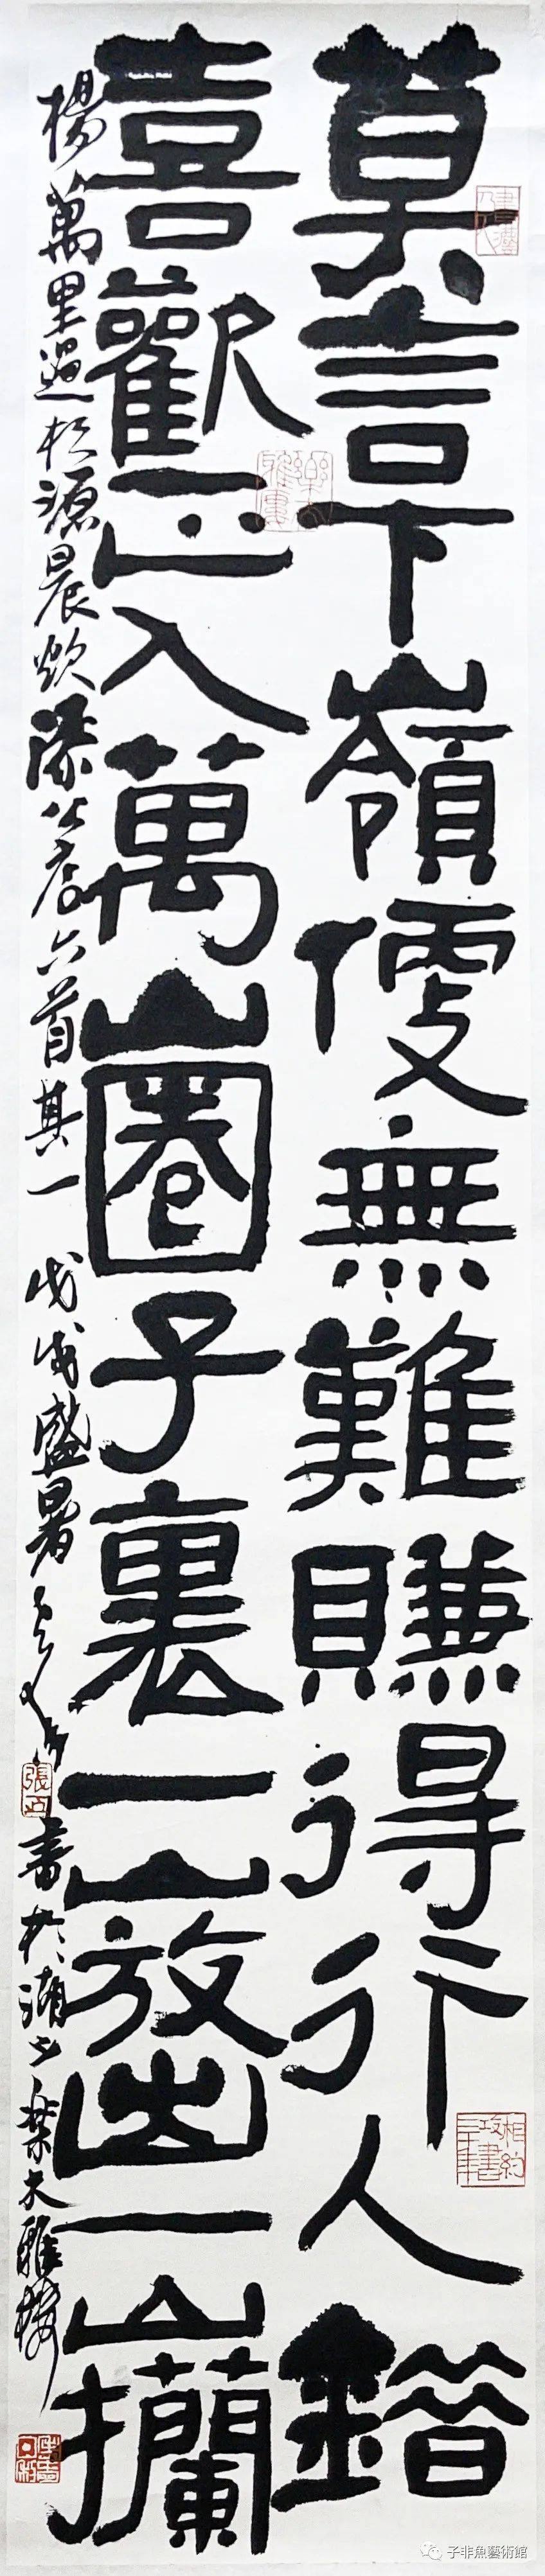 莫言下嶺便無難賺得行人錯
喜歡正入萬山圈子裏一山放出一山攔
楊萬里過松源晨炊漆公店六首其一 戊戌盛暑
書於
子非魚藝術館